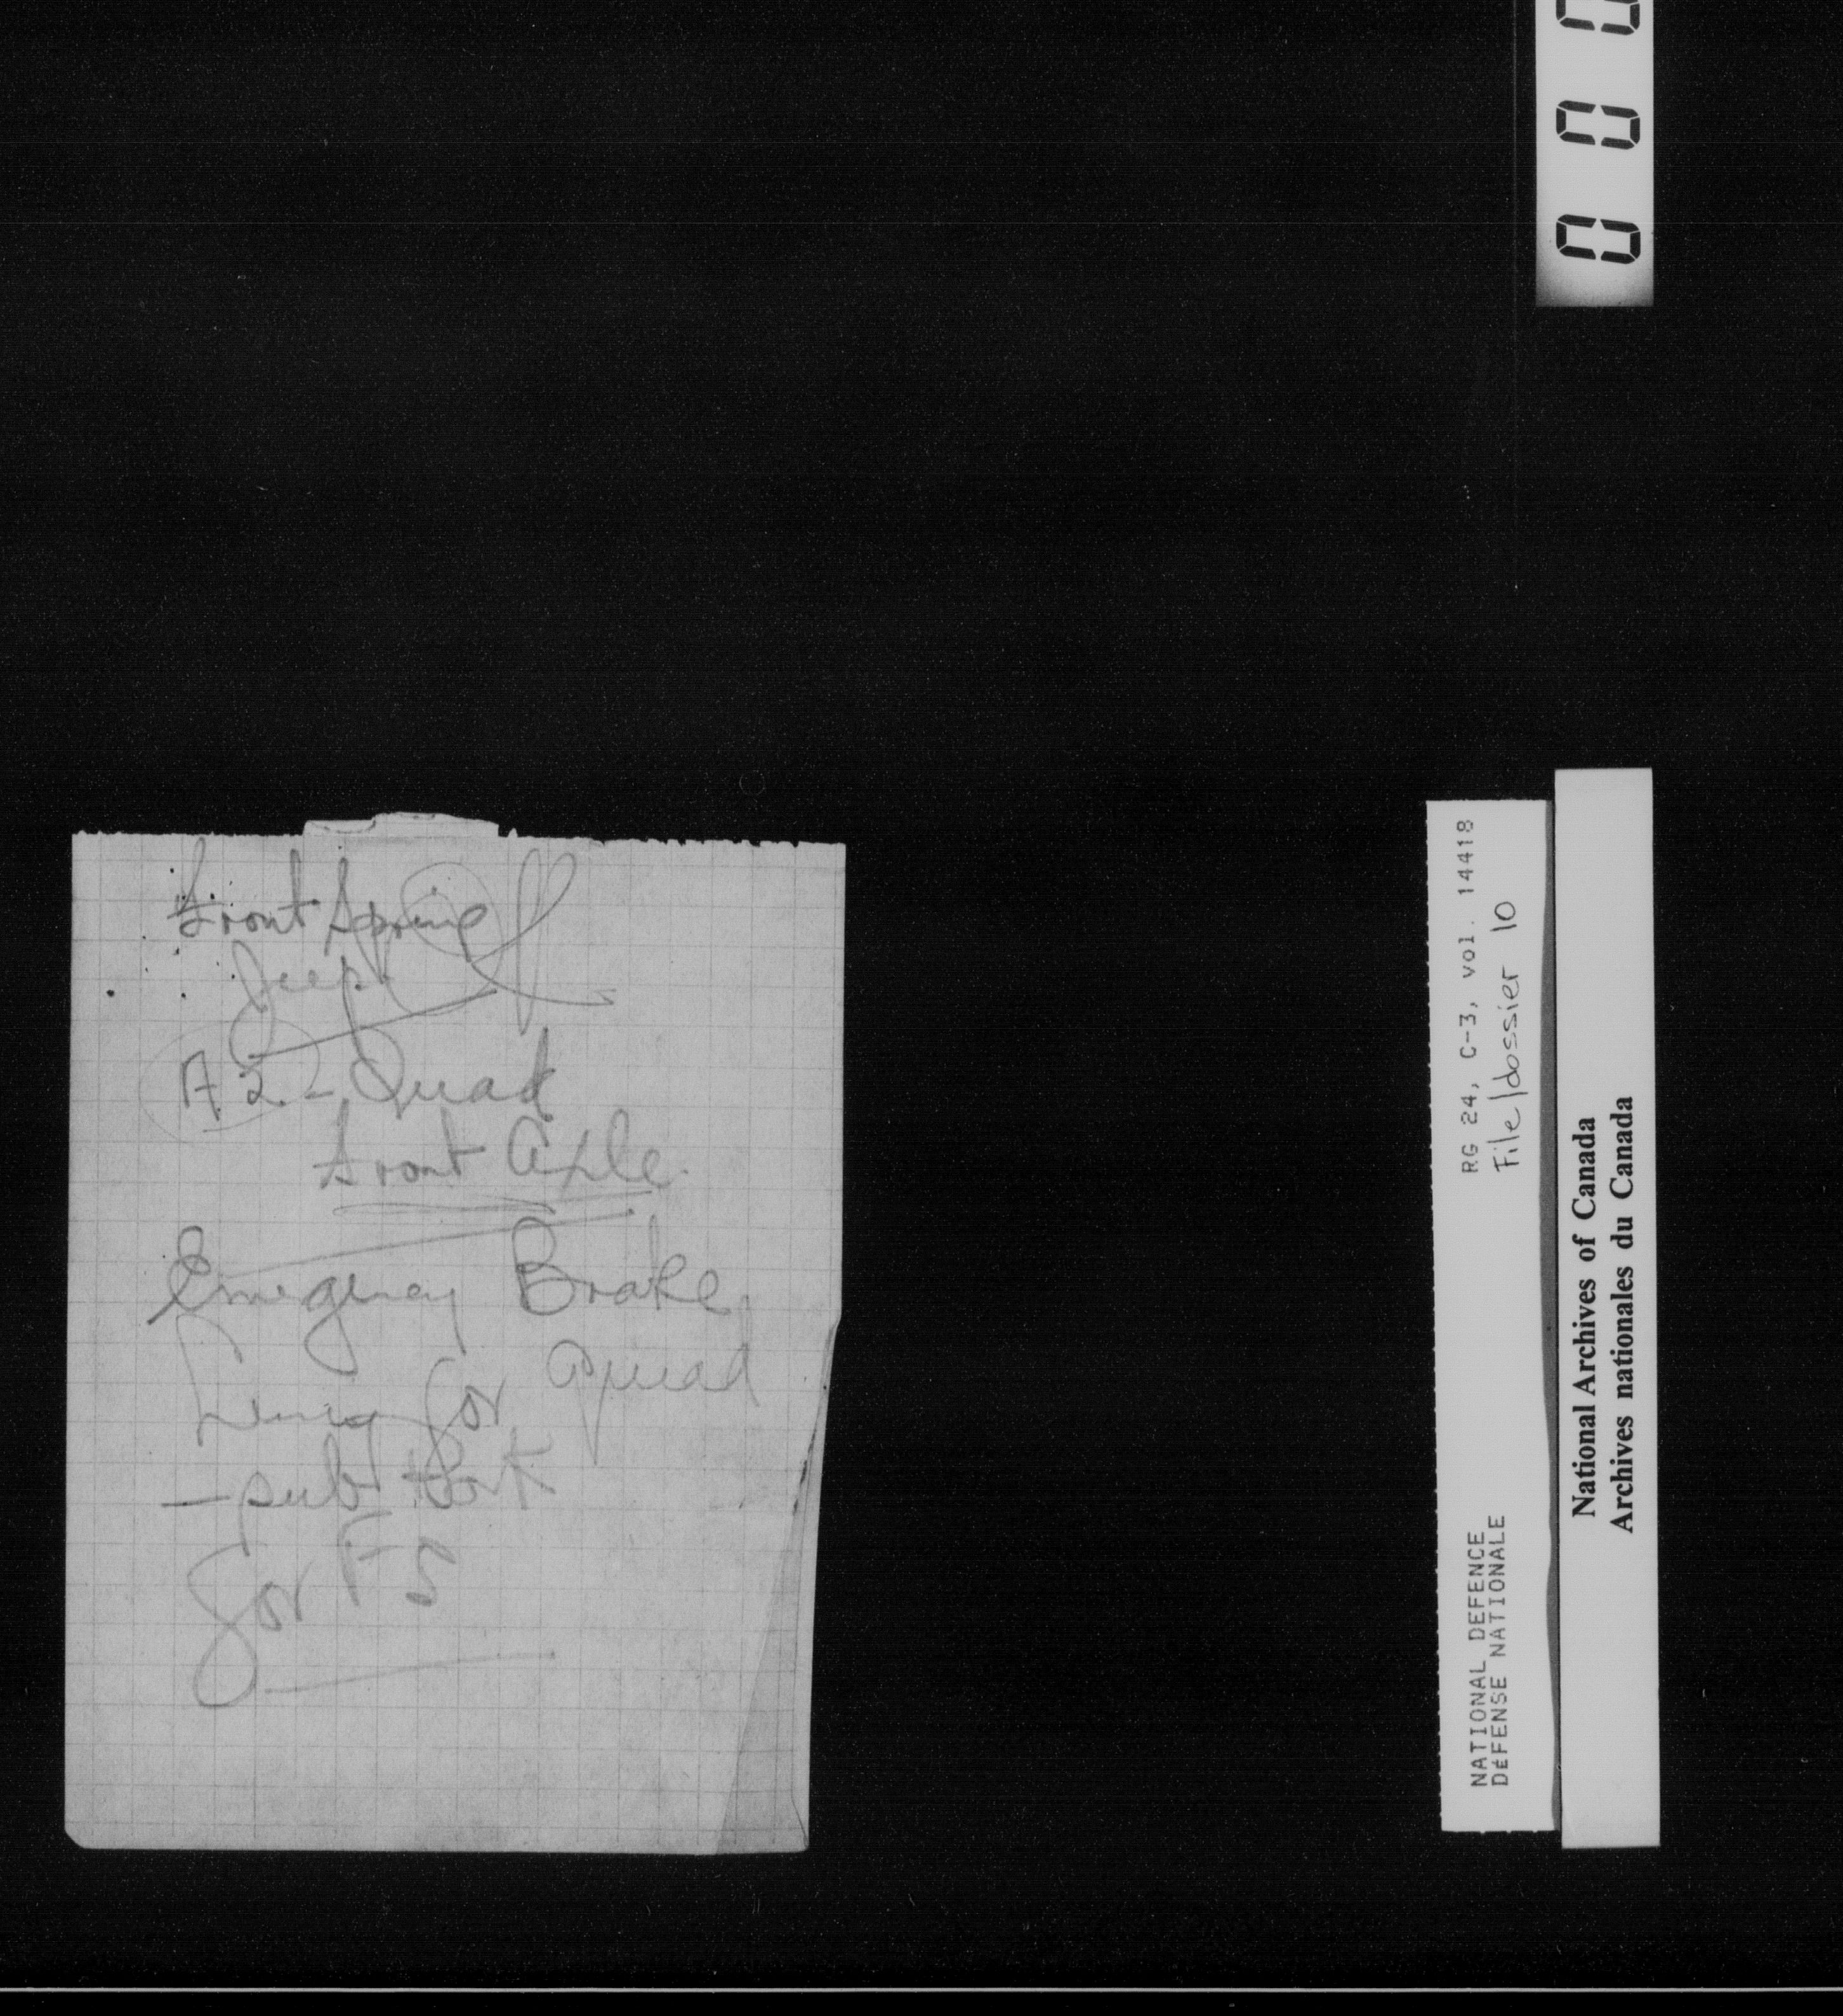 Front Spring
Jeep
A2 - Quad
Front Axle
Emergency Brake
Lining for Quad
- sub
for F5
0 0 0
RG 24, C-3, vol. 14418
File/dossier 10
NATIONAL DEFENCE
DÉFENSE NATIONALE
National Archives of Canada
Archives nationales du Canada